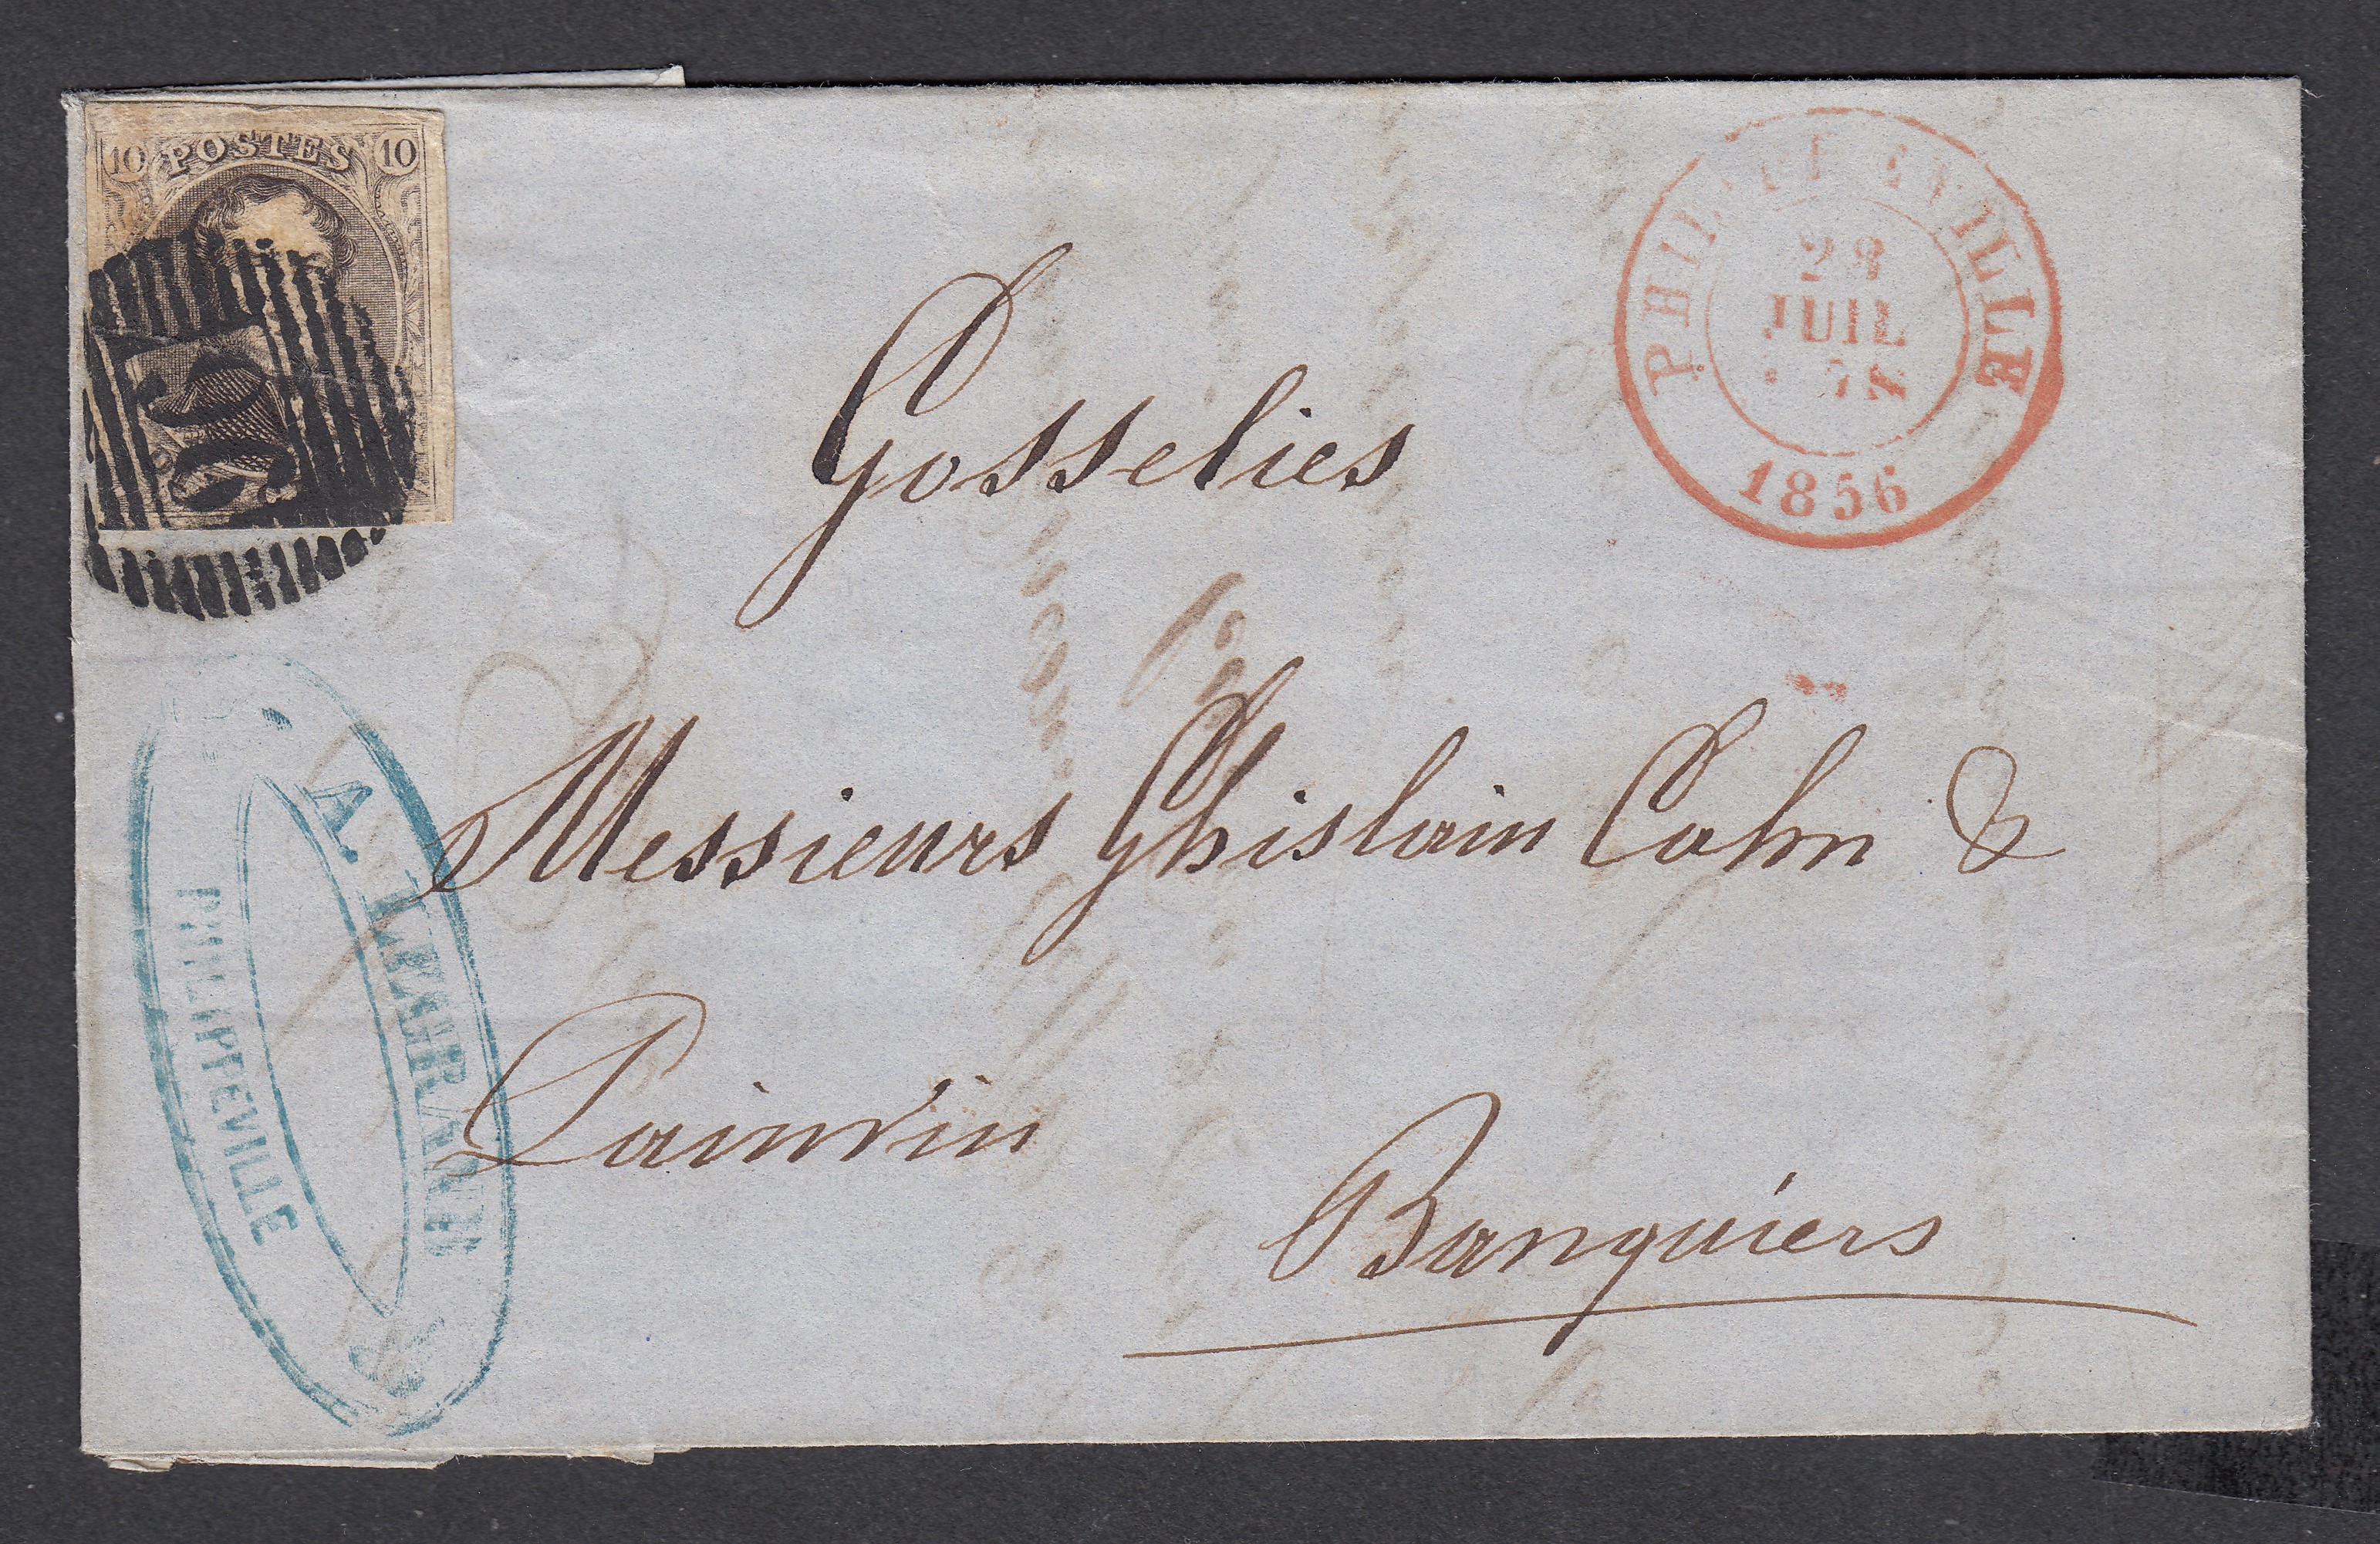 10 POSTES 10
PHILIPPEVILLE
28
JUIL
1856
Gosselies
Messieurs Ghislain Cahn &
Painvin
Banquiers
A.
PHILIPPEVILLE